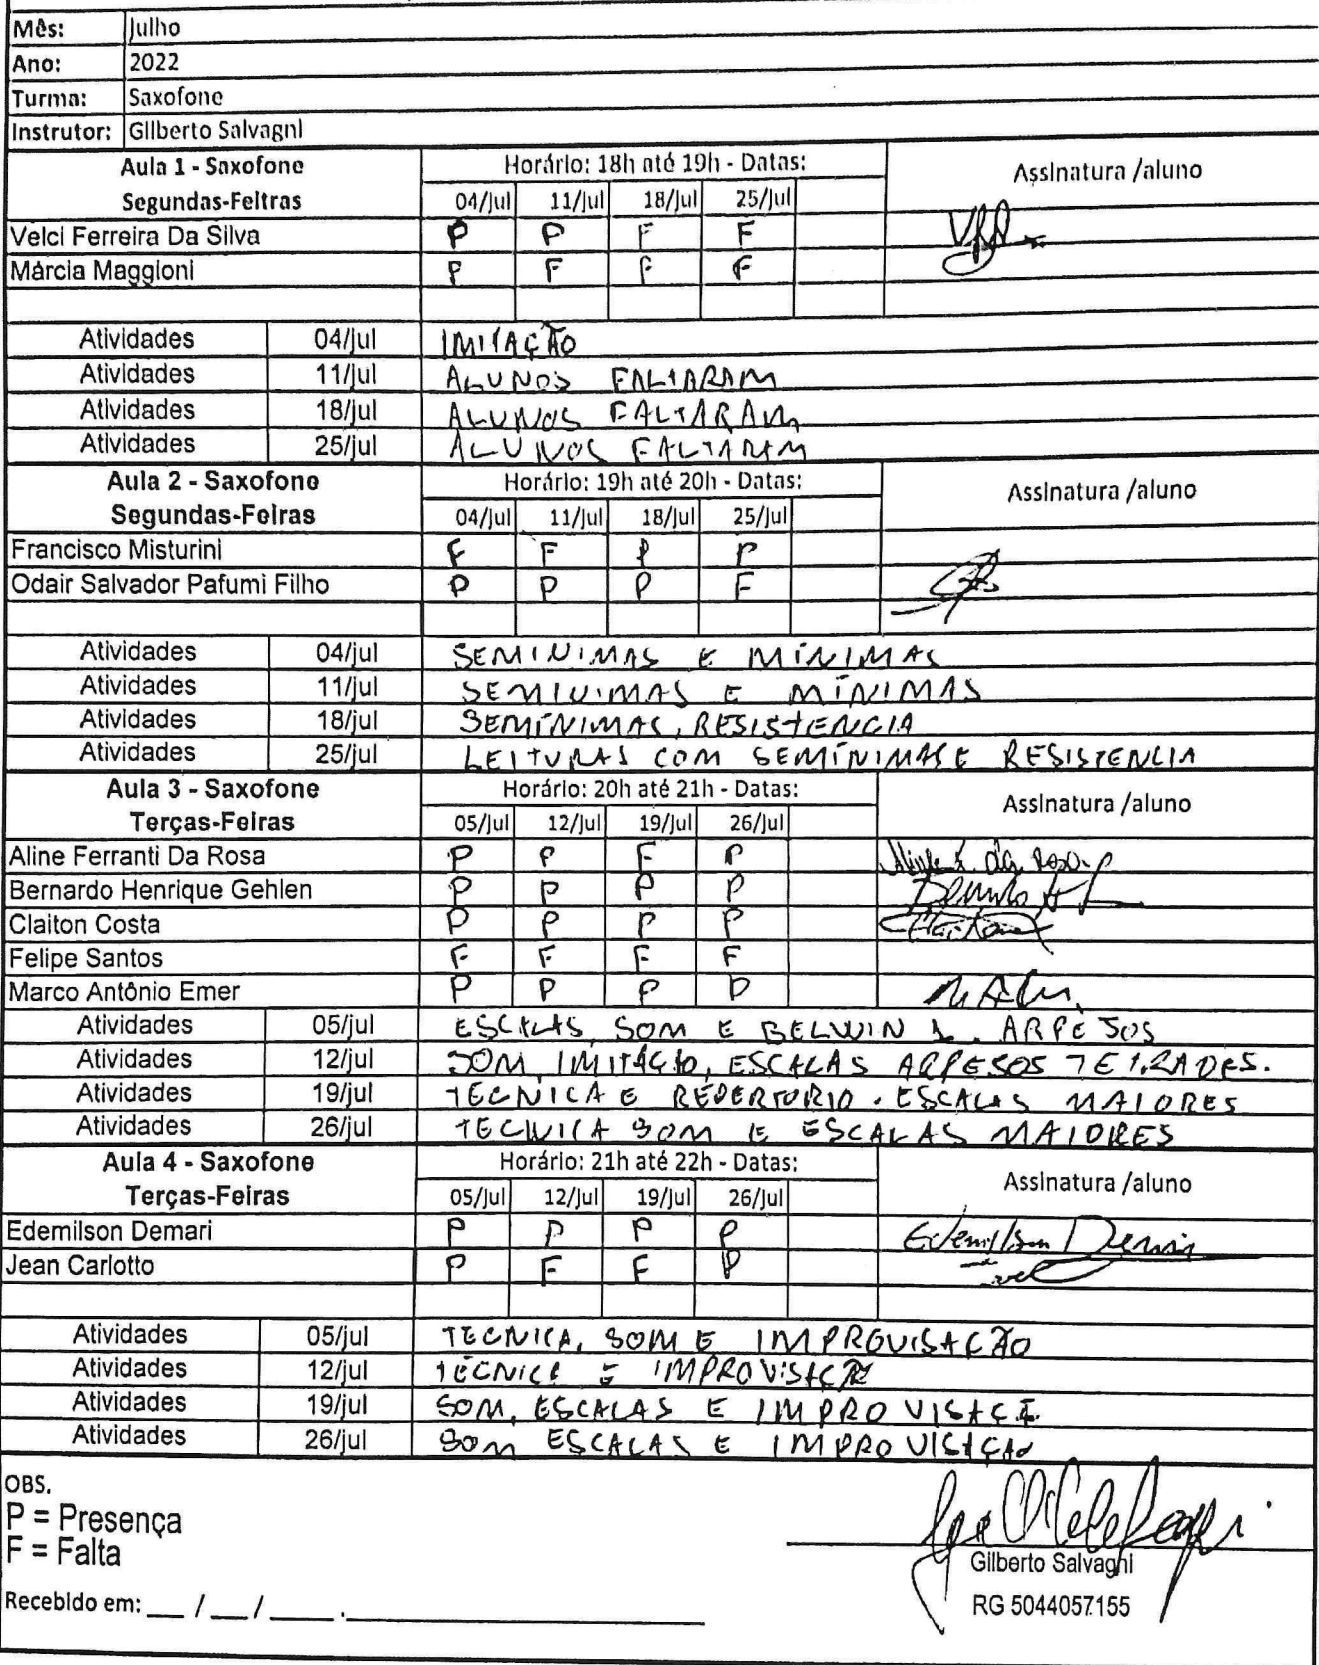 Mês: Julho
Ano: 2022
Turma: Saxofone
Instrutor: Gilberto Salvagni
Aula 1 - Saxofone Horário: 18h até 19h - Datas: Assinatura /aluno
Segundas-Feitras 04/jul 11/jul 18/jul 25/jul
Velci Ferreira Da Silva P P F F
Márcia Maggioni P F F F
Atividades 04/jul IMITAÇÃO
Atividades 11/jul ALUNOS FALTARAM
Atividades 18/jul ALUNOS FALTARAM
Atividades 25/jul ALUNOS FALTARAM
Aula 2 - Saxofone Horário: 19h até 20h - Datas: Assinatura /aluno
Segundas-Feiras 04/jul 11/jul 18/jul 25/jul
Francisco Misturini F F P P
Odair Salvador Pafumi Filho P P P F
Atividades 04/jul SEMINIMAS E MÍNIMAS
Atividades 11/jul SEMINIMAS E MÍNIMAS
Atividades 18/jul SEMÍNIMAS, RESISTENCIA
Atividades 25/jul LEITURAS COM SEMÍNIMAS E RESISTENCIA
Aula 3 - Saxofone Horário: 20h até 21h - Datas: Assinatura /aluno
Terças-Feiras 05/jul 12/jul 19/jul 26/jul
Aline Ferranti Da Rosa P P F P
Bernardo Henrique Gehlen P P P P
Claiton Costa P P P P
Felipe Santos F F F F
Marco Antônio Emer P P P P
Atividades 05/jul ESCALAS, SOM E BELWIN 1. ARPEJOS
Atividades 12/jul SOM, IMITAÇÃO, ESCALAS ARPEJOS TETRADES.
Atividades 19/jul TECNICA E REPERTORIO. ESCALAS MAIORES
Atividades 26/jul TECNICA SOM E ESCALAS MAIORES
Aula 4 - Saxofone Horário: 21h até 22h - Datas: Assinatura /aluno
Terças-Feiras 05/jul 12/jul 19/jul 26/jul
Edemilson Demari P P P P Edemilson Demari
Jean Carlotto P F F P
Atividades 05/jul TECNICA, SOM E IMPROVISAÇÃO
Atividades 12/jul TÉCNICA E IMPROVISAÇÃO
Atividades 19/jul SOM, ESCALAS E IMPROVISAÇÃ
Atividades 26/jul SOM ESCALAS E IMPROVISAÇÃO
OBS.
P = Presença
F = Falta
Gilberto Salvagni
Recebido em: __ / __ / ____ . RG 5044057155